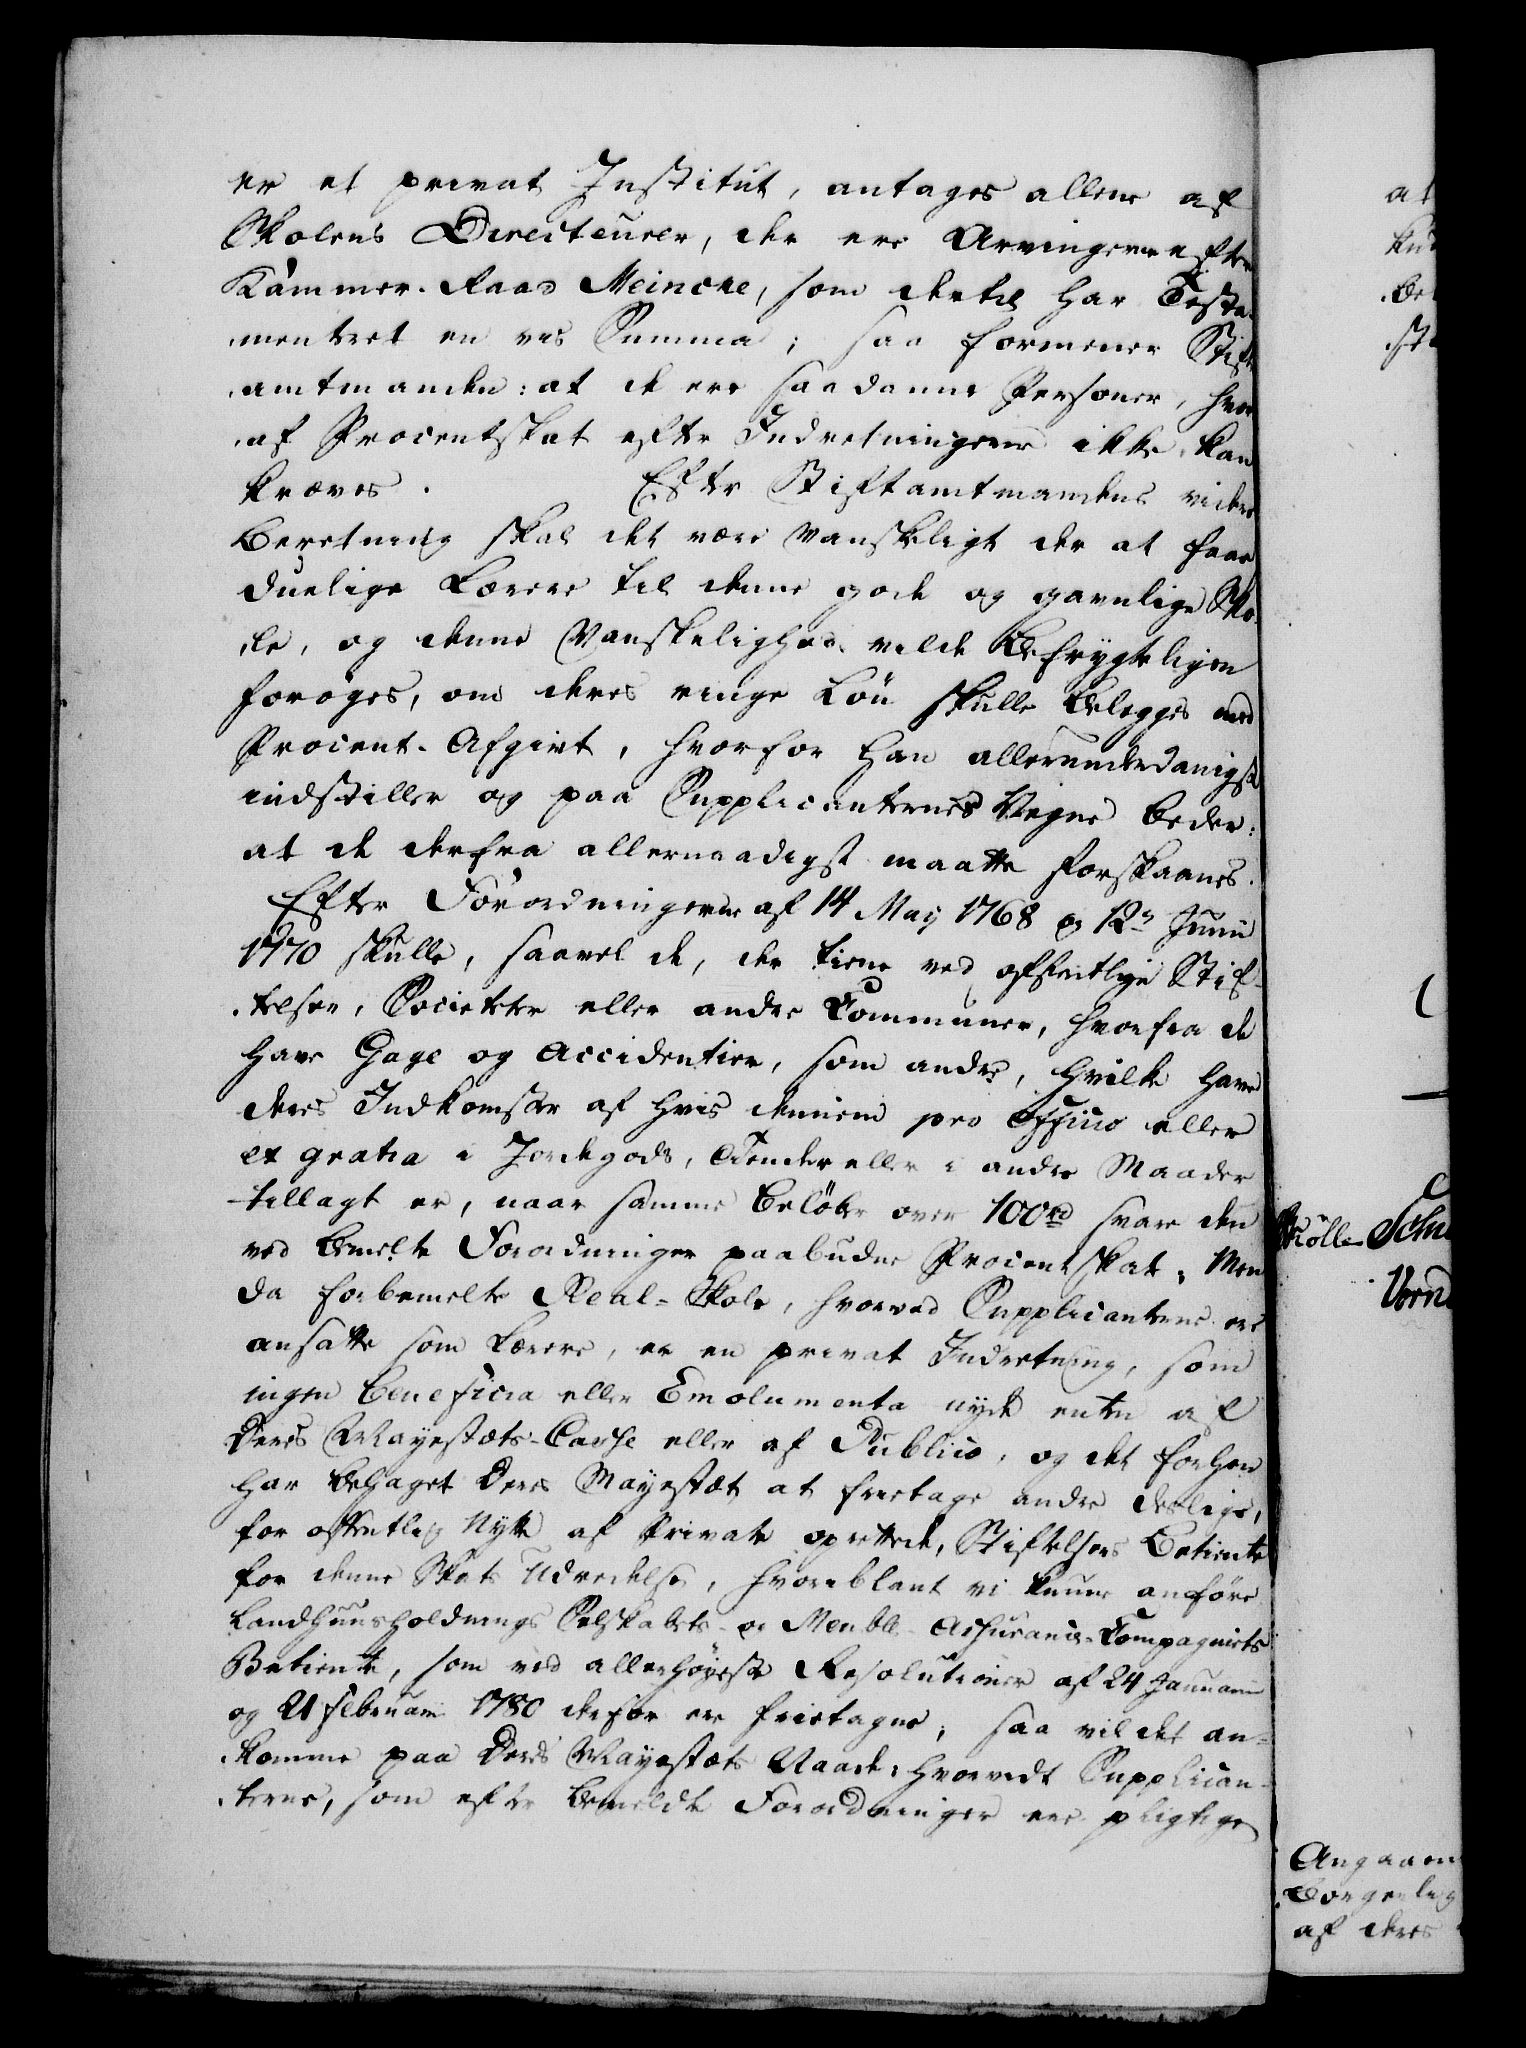 er et privat Institut, antages allene af
Skolens Directeurer, der ere Arvingerne efter
Kammer-Raad Meincke, som dertil har Testa-
menteret en vis Summa; saa formener Stift-
amtmanden: at de ere saadanne Personer, hvor-
af Procentskat efter Indretningerne ikke kan
kræves. Efter Stiftamtmandens videre
Beretning skal det være vanskeligt der at faae
duelige Lærere til denne gode og gavnlige Sko-
le, og denne Vanskelighed vilde befrygteligen
forøges, om deres ringe Løn skulle belegges med
Procent-Afgivt, hvorfor han allerunderdanigst
indstiller og paa Supplicanternes Vegne beder:
at de derfra allernaadigst maatte forskaanes.
Efter Forordningerne af 14 May 1768 og 12te Junii
1770 skulle, saavel de, der tiene ved offentlige Stif-
telser, Societeter eller andre Communer, hvorfra de
have Gage og Accidentier, som andre, hvilke have
deres Indkomster af hvis dennem pro officio eller
ex gratia i Jordegods, Tiender eller i andre Maader
tillagt er, naar samme beløber over 100 rd svare den
ved bemelte Forordninger paabudne Procentskat; Men
da forbemelte Real-Skole, hvorved Supplicanterne ere
ansatte som Lærere, er en privat Indretning, som
ingen beneficia eller Emolumenta nyde enten af
Deres Mayestæts-Casse eller af Publico, og det forhen
har behaget Deres Mayestæt at fritage andre deslige,
for offentlig Nytte af Private oprettede, Stiftelsers Betiente
for denne Skats Udredelse, hvoriblant vi kunne anføre
Landhuusholdnings Selskabets- og Meuble-Assurance-Compagniets
Betiente, som ved allerhøyeste Resolutioner af 24 Januarii
og 21 Februarii 1780 derfor ere fritagne; saa vil det an-
komme paa Deres Mayestæts Naade, hvorvidt Supplican-
terne, som efter bemeldte Forordninger ere pligtige
at
Angaaen
Borgerlig
af deres